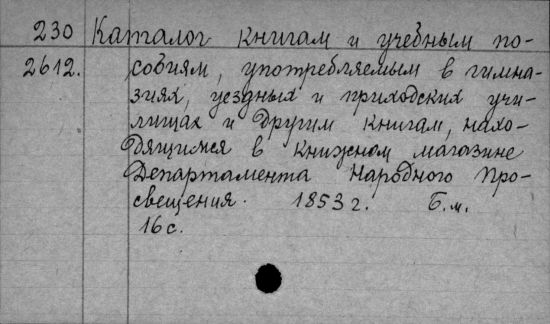 230 Каталог книгам и учебным по-
2612. собиям, употребляемым в гимна-
зиях, уездных и приходских учи-
лищах и другим книгам, нахо-
дящимся в книжном магазине
Департамента Народного Про-
свещения. 1853 г. Б.м.
16 с.